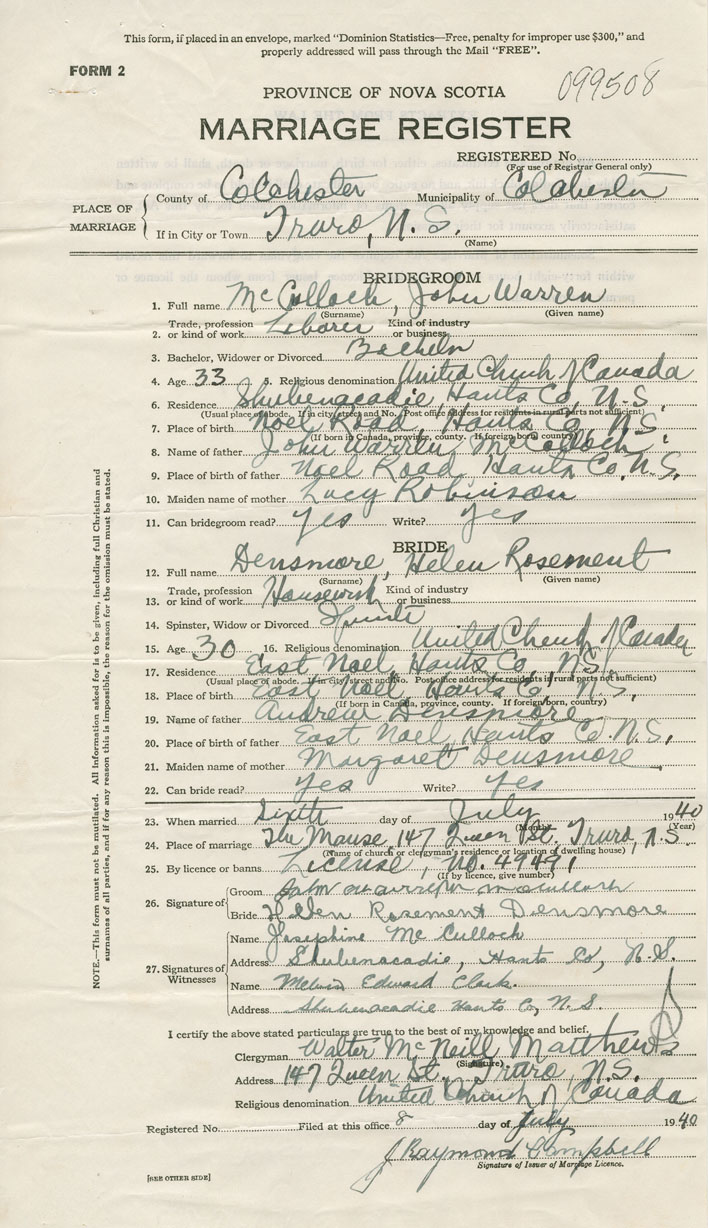 This form, if placed in an envelope, marked "Dominion Statistics—Free, penalty for improper use $300," and
properly addressed will pass through the Mail "FREE".
FORM 2
099508
PROVINCE OF NOVA SCOTIA
MARRIAGE REGISTER
REGISTERED No.
(For use of Registrar General only)
PLACE OF MARRIAGE
County of Colchester Municipality of Colchester
If in City or Town Truro, N.S.
(Name)
BRIDEGROOM
1. Full name McCulloch, John Warren
(Surname) (Given name)
2. Trade, profession or kind of work Laborer Kind of industry or business
3. Bachelor, Widower or Divorced Bachelor
4. Age 33 5. Religious denomination United Church of Canada
6. Residence Shubenacadie, Hants Co, N.S.
(Usual place of abode. If in city street and No. Post office address for residents in rural parts not sufficient)
7. Place of birth Noel Road, Hants Co, N.S.
(If born in Canada, province, county. If foreign born, country)
8. Name of father John Warren McCulloch
9. Place of birth of father Noel Road Hants Co. N.S.
10. Maiden name of mother Lucy Robinson
11. Can bridegroom read? Yes Write? Yes
BRIDE
12. Full name Densmore, Helen Rosement
(Surname) (Given name)
13. Trade, profession or kind of work Housework Kind of industry or business
14. Spinster, Widow or Divorced
15. Age 30 16. Religious denomination United Church of Canada
17. Residence East Noel, Hants Co, N.S.
(Usual place of abode. If in city street and No. Post office address for residents in rural parts not sufficient)
18. Place of birth East Noel, Hants Co, N.S,
(If born in Canada, province, county. If foreign born, country)
19. Name of father Andrew Densmore
20. Place of birth of father East Noel, Hants Co. N.S.
21. Maiden name of mother Margaret Densmore
22. Can bride read? Yes Write? Yes
23. When married Sixth day of July 1940
(Month) (Year)
24. Place of marriage The Manse, 147 Queen St, Truro, N.S.
(Name of church or clergyman's residence or location of dwelling house)
25. By licence or banns License, No. 49491
(If by licence, give number)
26. Signature of
Groom John Warren McCulloch
Bride Helen Rosement Densmore
27. Signatures of Witnesses
Name Josephine McCulloch
Address Shubenacadie, Hants Co, N.S.
Name Melvin Edward Clark.
Address Shubenacadie Hants Co, N.S.
I certify the above stated particulars are true to the best of my knowledge and belief.
Clergyman Walter McNeill Matthews
(Signature)
Address 147 Queen St. Truro, N.S.
Religious denomination United Church of Canada
Registered No. Filed at this office 8 day of July 1940
J Raymond Campbell
Signature of Issuer of Marriage Licence.
[SEE OTHER SIDE]
NOTE.—This form must not be mutilated. All Information asked for is to be given, including full Christian and
surnames of all parties, and if for any reason this is impossible, the reason for the omission must be stated.